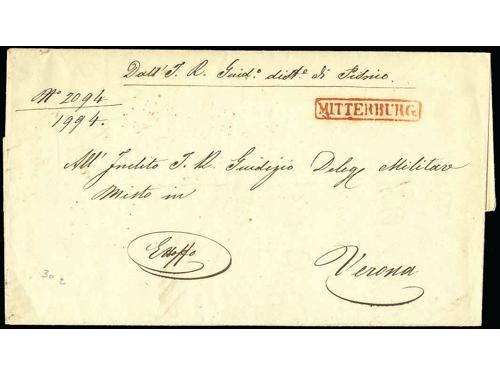 Dall' I. R. Giud.º distt.e di Pisino.
Nº 2094
1994.
MITTERBURG
All' Inclito I. R. Giudizio Deleg Militare
Misto in
Exoffo
Verona
30